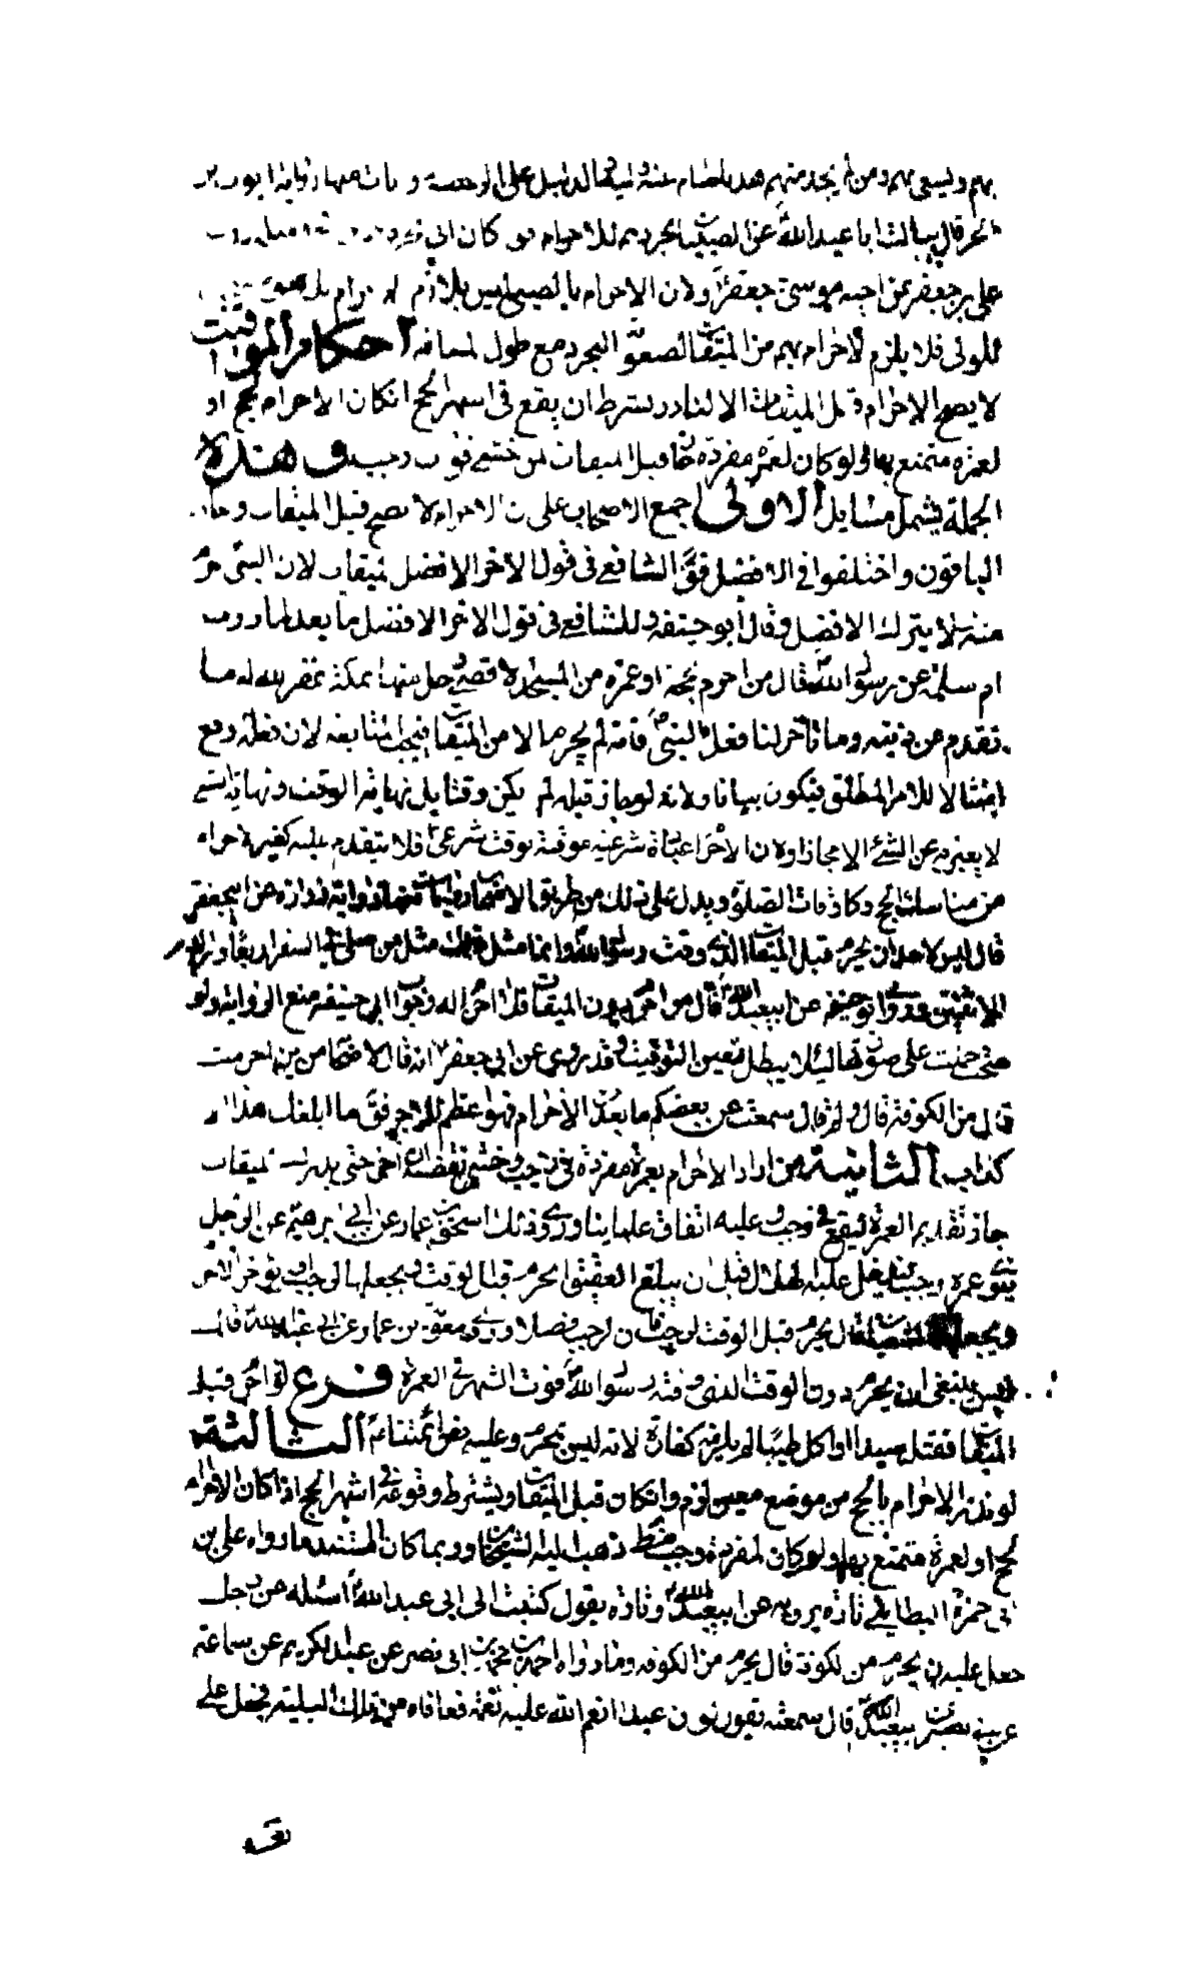 بهم ويسعى بهم ومن لم يجد منهم هديا فليصم عنه وليه
الحر قال سالت ابا عبد الله عن الصبيان نجردهم للاحرام كان ابى
على بن جعفر عن اخيه موسى بن جعفر ولان الاحرام بالصبى ليس بلازم
للولى فلا يلزم الاحرام بهم من الميقات لصعوبة التجرد مع طول المسافة احكام المواقيت
لا يصح الاحرام قبل الميقات الا لناذر بشرط ان يقع فى اشهر الحج ان كان الاحرام لحج او
لعمرة متمتع بها او لو كان لعمرة مفردة قبل الميقات لمن خشى فوت رجب وهذه
الجملة يشمل مسايل الاولى اجمع الاصحاب على ان الاحرام لا يصح قبل الميقات وجاز
الباقون واختلفوا فى الافضل فق الشافعى فى قول الاخر الافضل الميقات لان النبى احرم
منه فلا يترك الافضل وقال ابو حنيفة والشافعى فى قول الاخر الافضل ما بعد لما روت
ام سلمة عن رسول الله قال من احرم بحجة او عمرة من المسجد الاقصى غفر الله له ما
تقدم من ذنبه وما تأخر لنا فعل النبى فانه لم يحرم الا من الميقات فيجب متابعته لان فعله وقع
امتثالا للامر المطلق فيكون بيانا ولانه لو جاز قبله لم يكن وقتا بل نهاية الوقت ونهاية الشئ
لا يعبر به عن الشئ الا مجازا ولان الاحرام عبادة شرعية موقتة بوقت شرعى فلا يتقدم عليه كغيره
من مناسك الحج وكاوقات الصلوة ويدل على ذلك من طريق الاصحاب روايات منها رواية زرارة عن ابى جعفر
قال ليس لاحد ان يحرم قبل الميقات الذى وقت رسول الله وانما مثل ذلك مثل من صلى فى السفر اربعا وترك
الاثنتين وروى ابو حنيفة عن ابى عبد الله قال من احرم دون الميقات فلا احرام له وجواب ابى حنيفة منع الرواية ولو
صحت حملت على صورتها لئلا يبطل تعيين التوقيت وقد روى عن ابى جعفر انه قال لاصحابه من اين احرمت
قال من الكوفة قال ولم قال سمعت عن بعضكم ما بعد من الاحرام فهو اعظم للاجر فق ما ابلغك هذا الا
كذاب الثانية من اراد الاحرام بعمرة مفردة فى رجب وخشى تقضيه ان اخر حتى يدرك الميقات
جاز تقديم العمرة ليقع فى رجب وعليه اتفاق علماينا وروى ذلك اسحق بن عمار عن ابى ابرهيم عن الرجل
ينوى عمرة رجب فيدخل عليه الهلال قبل ان يبلغ العقيق ايحرم قبل الوقت ويجعلها لرجب او يوخر الاحرام
ويجعلها لشعبان قال يحرم قبل الوقت لرجب فان لرجب فضلا وروى معوية بن عمار عن ابى عبد الله قال
ليس ينبغى ان يحرم دون الوقت الذى وقته رسول الله الا ان يخاف فوت الشهر فى العمرة فرع لو احرم قبل
الميقات فقتل صيدا او اكل طيبا لم يلزمه كفارة لانه ليس بمحرم وعليه نص ائمتنا الثالثة
لو نذر الاحرام بالحج من موضع معين لزم وان كان قبل الميقات ويشترط وقوعه فى اشهر الحج اذا كان الاحرام
لحج او لعمرة متمتع بها ولو كان لمفردة وجب مط ذهب اليه الشيخان وربما كان المستند ما رواه على بن
ابى حمزة البطاينى تارة يرويه عن ابى عبد الله وتارة يقول كتبت الى ابى عبد الله اسئله عن رجل
جعل عليه ان يحرم من الكوفة قال يحرم من الكوفة وما رواه احمد بن محمد بن ابى نصر عن عبد الكريم عن سماعة
عن ابى بصير عن ابى عبد الله قال سمعته يقول لو ان عبدا انعم الله عليه نعمة فعافاه من تلك البلية فجعل على
نفسه